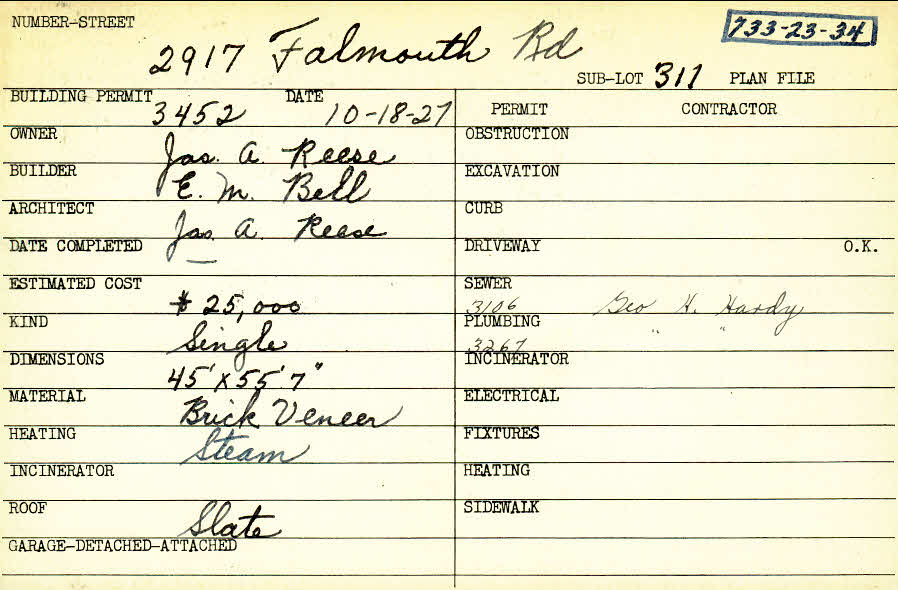 NUMBER-STREET
733-23-34
2917 Falmouth Rd
SUB-LOT 311 PLAN FILE
BUILDING PERMIT 3452 DATE 10-18-27
PERMIT CONTRACTOR
OWNER Jas. A. Reese
OBSTRUCTION
BUILDER E. M. Bell
EXCAVATION
ARCHITECT Jas. A. Reese
CURB
DATE COMPLETED —
DRIVEWAY O.K.
ESTIMATED COST $ 25,000
SEWER 3106 Geo H. Hardy
KIND Single
PLUMBING 3267 " "
DIMENSIONS 45' x 55' 7"
INCINERATOR
MATERIAL Brick Veneer
ELECTRICAL
HEATING Steam
FIXTURES
INCINERATOR
HEATING
ROOF Slate
SIDEWALK
GARAGE-DETACHED-ATTACHED